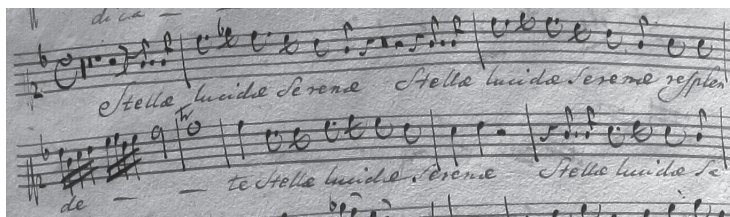 dica - -
Stellæ lucidæ Serenæ Stellæ lucidæ Serenæ resplen
de - - te Stellæ lucidæ Serenæ Stellæ lucidæ Se